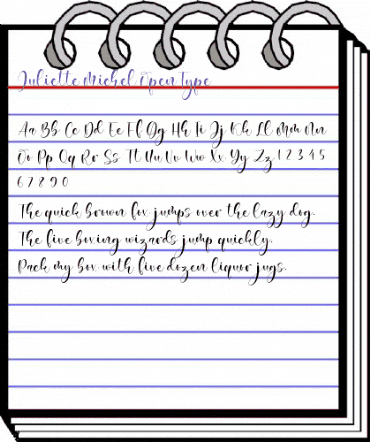 Juliette Michel Open Type
Aa Bb Cc Dd Ee Ff Gg Hh Ii Jj Kk Ll Mm Nn
Oo Pp Qq Rr Ss Tt Uu Vv Ww Xx Yy Zz 1 2 3 4 5
6 7 8 9 0
The quick brown fox jumps over the lazy dog.
The five boxing wizards jump quickly.
Pack my box with five dozen liquor jugs.